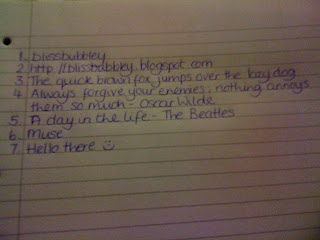 1. blissbubbley
2. http://blissbubbley.blogspot.com
3. The quick brown fox jumps over the lazy dog
4. Always forgive your enemies; nothing annoys
them so much - Oscar Wilde
5. A day in the life - The Beatles
6. Muse
7. Hello there ☺